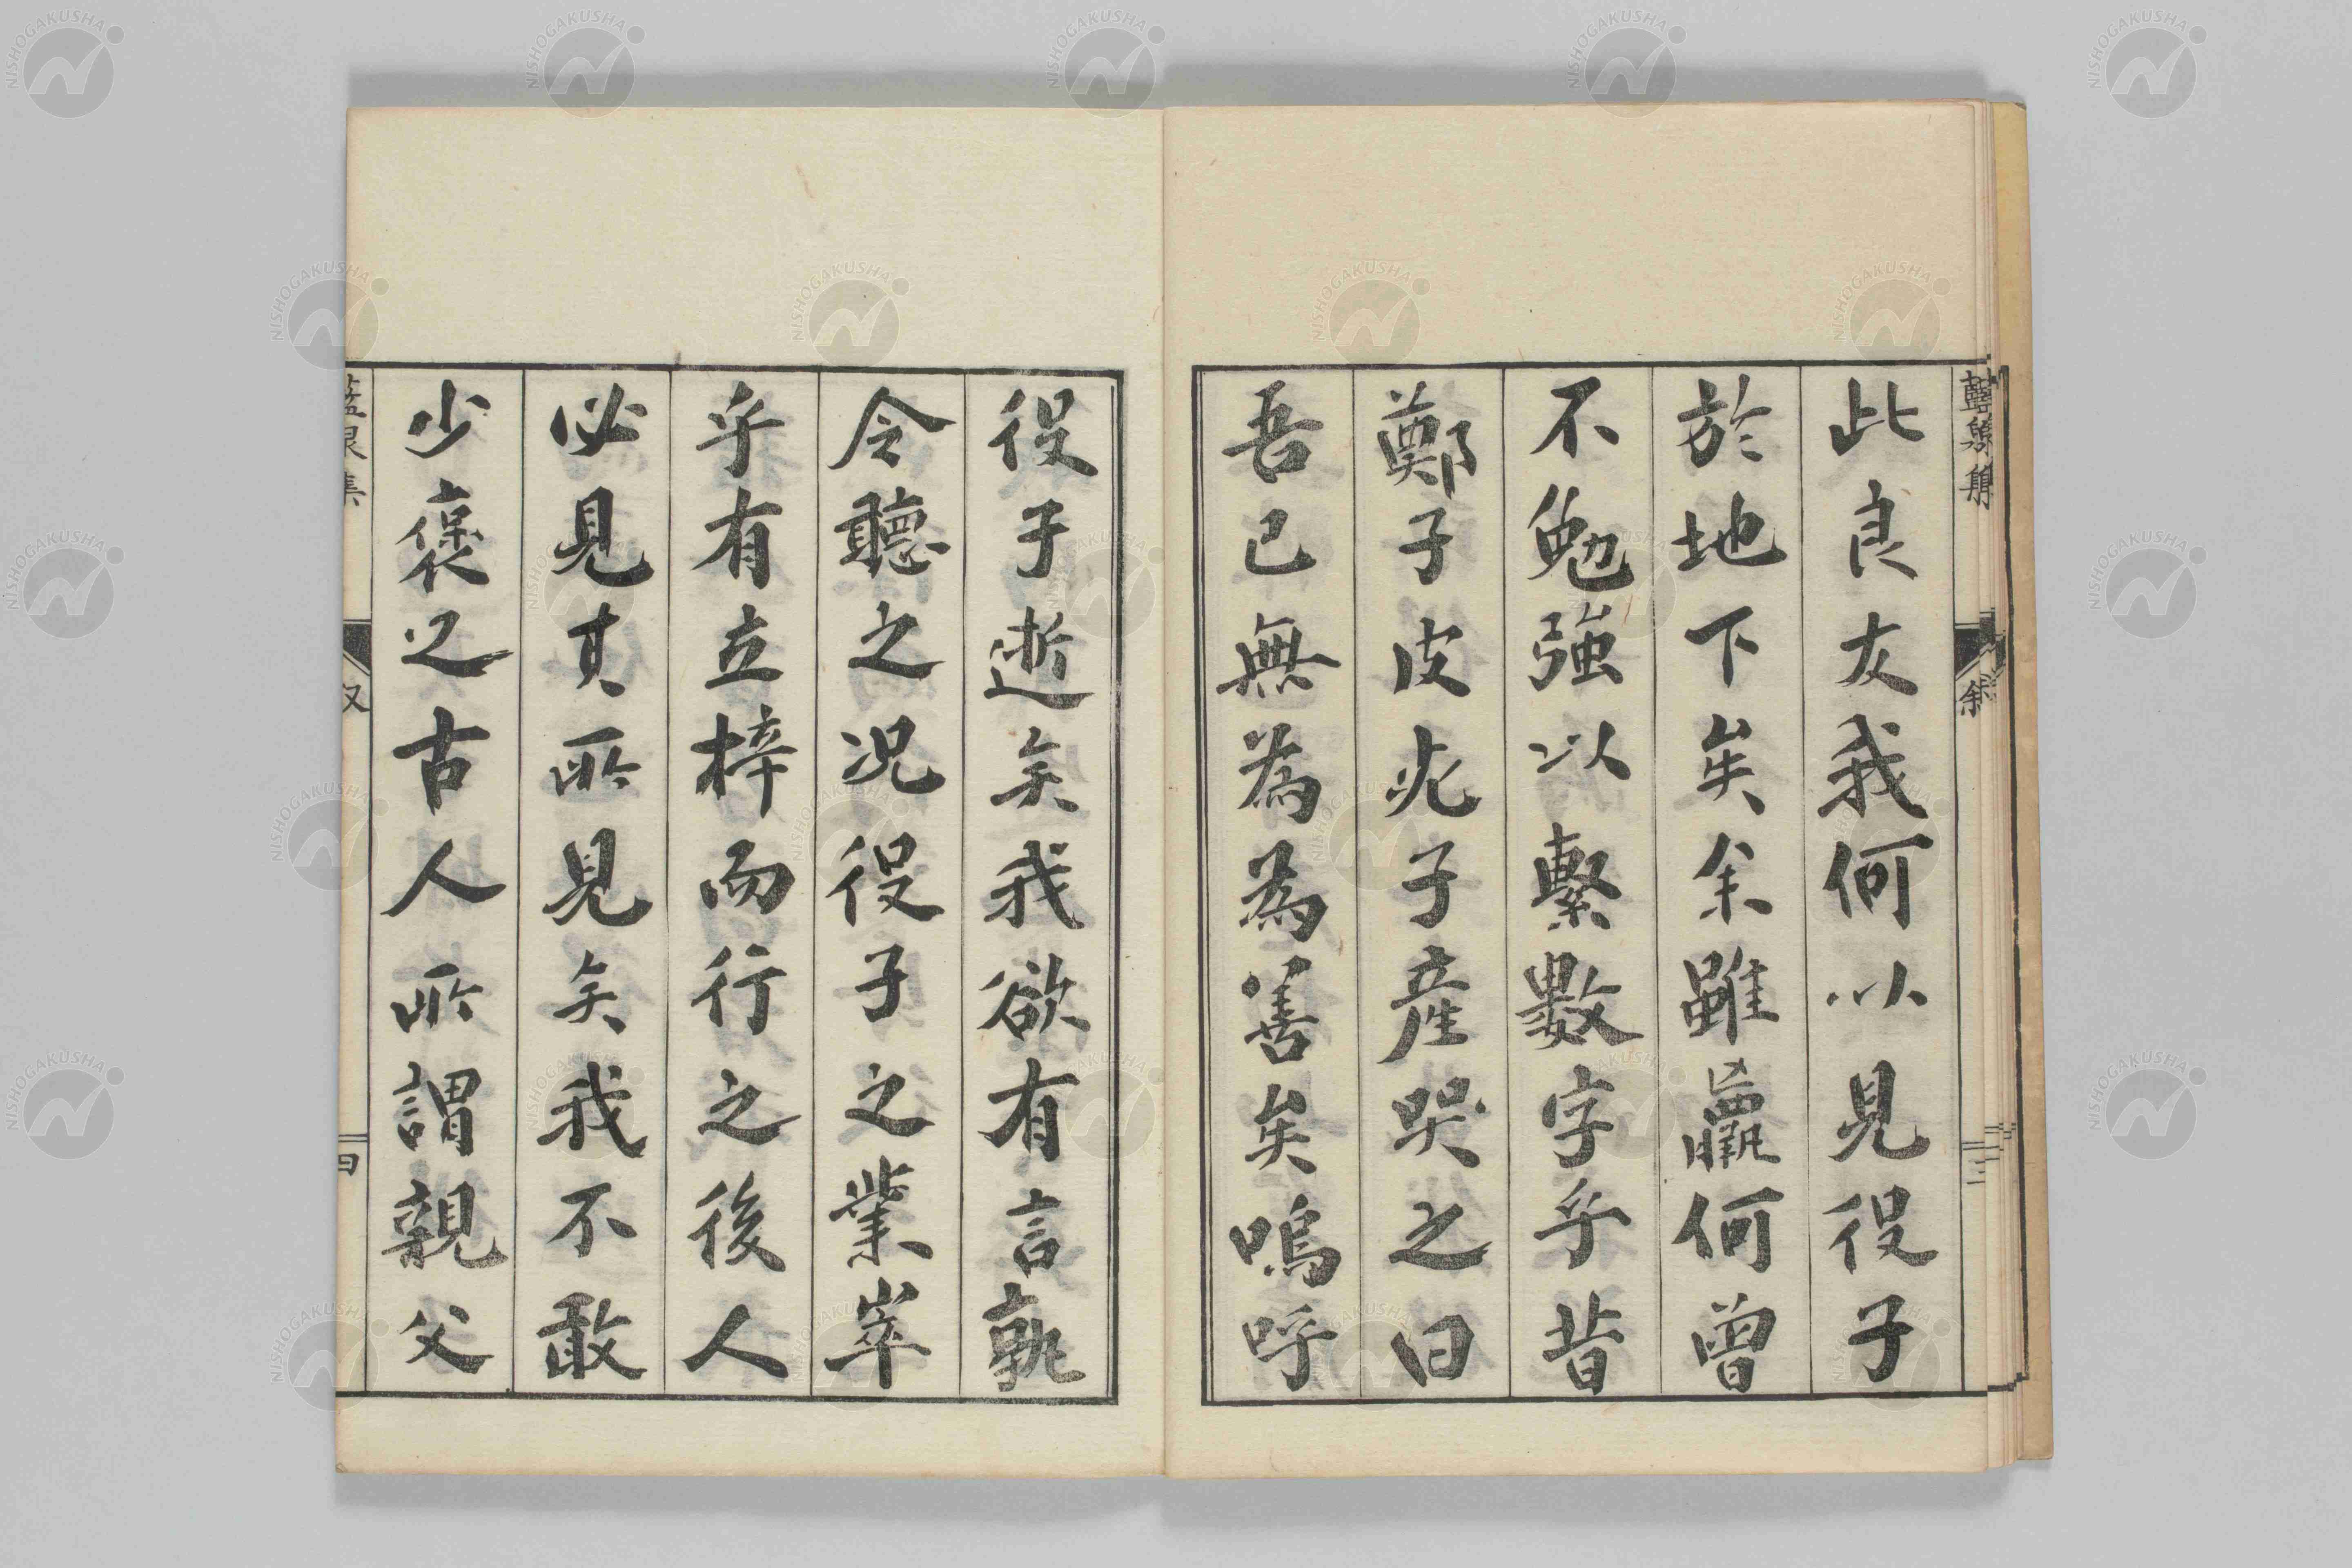 此良友我何以見役子
於地下矣余雖羸何曾
不勉強以繫數字乎昔
鄭子皮死子産哭之曰
吾已無為為善矣嗚呼
役子逝矣我欲有言孰
令聽之況役子之業崒
乎有立梓而行之後人
必見其所見矣我不敢
少褒之古人所謂親父
NISHOGAKUSHA